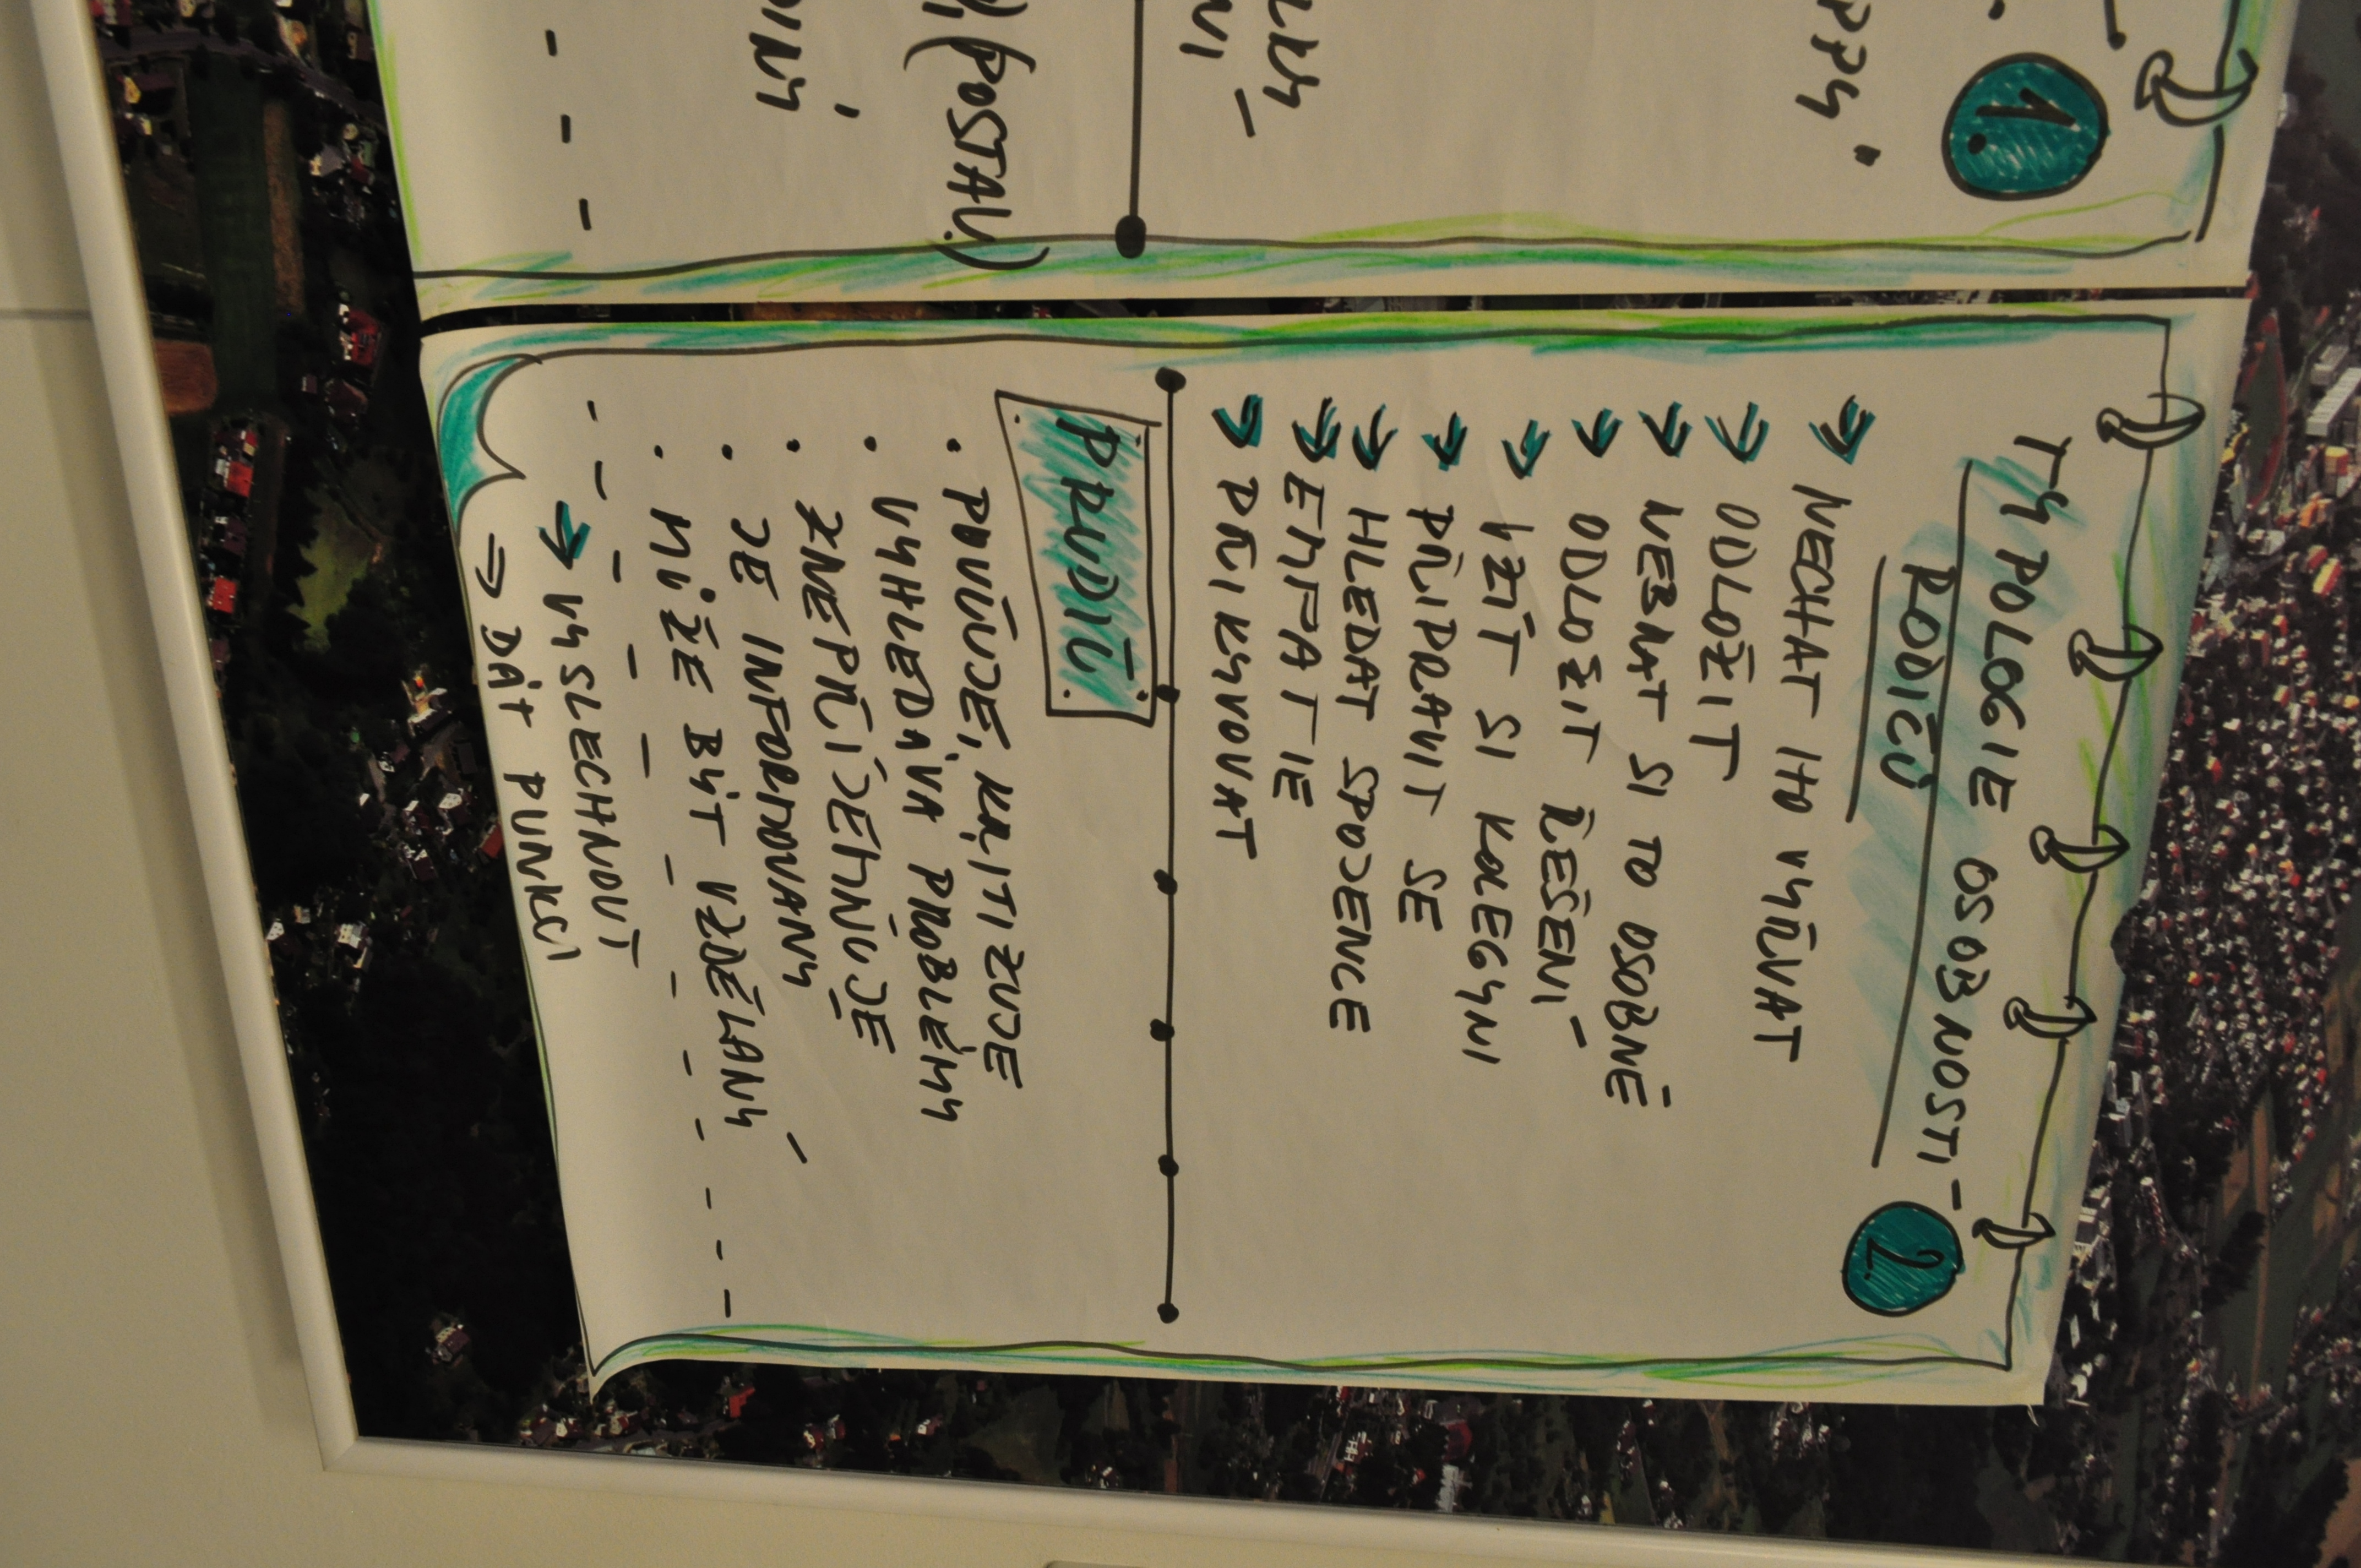 1.
(POSTAV.)
TYPOLOGIE OSOBNOSTÍ
RODIČŮ
2.
→ NECHAT HO VYŘVAT
→ ODLOŽIT
→ NEBRAT SI TO OSOBNĚ
→ ODLOŽIT ŘEŠENÍ
→ VZÍT SI KOLEGYNI
→ PŘIPRAVIT SE
→ HLEDAT SPOJENCE
→ EMPATIE
→ PŘIKYVOVAT
PRUDIČ
• POUČUJE, KRITIZUJE
• VYHLEDÁVÁ PROBLÉMY
ZNEPŘÍJEMŇUJE
• JE INFORMOVANÝ
• MŮŽE BÝT VZDĚLANÝ
→ VYSLECHNOUT
⇒ DÁT FUNKCI